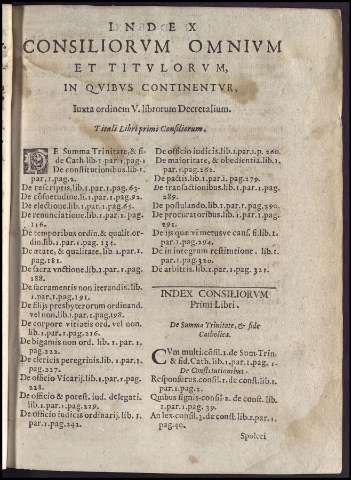 INDEX
CONSILIORVM OMNIVM
ET TITVLORVM,
IN QVIBVS CONTINENTVR,
Iuxta ordinem V. librorum Decretalium.
Tituli Libri primi Consiliorum.
DE Summa Trinitate, & fi-
de Cath. lib. 1. par. 1. pag. 1
De constitutionibus. lib. 1.
par. 1. pag. 2.
De rescriptis. lib. 1. par. 1. pag. 63.
De cōsuetudine. li. 1. par. 1. pag. 92.
De electione. lib. 1. par. 1. pag. 95.
De renunciatione. lib. 1. par. 1. pag.
116.
De temporibus ordin. & qualit. or-
din. lib. 1. par. 1. pag. 131.
De ætate, & qualitate. lib. 1. par. 1.
pag. 181.
De sacra vnctione. lib. 1. par. 1. pag.
188.
De sacramentis non iterandis. lib.
1. par. 1. pag. 191.
De filijs presbyterorum ordinand.
vel non. lib. 1. par. 1. pag. 198.
De corpore vitiatis ord. vel non.
lib. 1. par. 1. pag. 216.
De bigamis non ord. lib. 1. par. 1.
pag. 222.
De clericis peregrinis. lib. 1. par. 1.
pag. 227.
De officio Vicarij. lib. 1. par. 1. pag.
228.
De officio & potest. iud. delegati.
lib. 1. par. 1. pag. 229.
De officio iudicis ordinarij. lib. 1.
par. 1. pag. 242.
De officio iudicis. lib. 1. par. 1. p. 260.
De maioritate, & obedientia. lib. 1.
par. 1. pag. 262.
De pactis. lib. 1. par. 1. pag. 279.
De transactionibus. lib. 1. par. 1. pag.
289.
De postulando. lib. 1. par. 1. pag. 290.
De procuratoribus. lib. 1. par. 1. pag.
291.
De ijs quæ vi metusve caus. fi. lib. 1.
par. 1. pag. 294.
De in integrum restitutione. lib. 1.
par. 1. pag. 320.
De arbitris. lib. 1. par. 1. pag. 321.
INDEX CONSILIORVM
Primi Libri.
De Summa Trinitate, & fide
Catholica.
CVm multi. cōsil. 1. de Sum. Trin.
& fid. Cath. lib. 1. par. 1. pag. 1.
De Constitutionibus.
Responsurus. consil. 1. de const. lib. 1.
par. 1. pag. 2.
Quibus signis. consil. 2. de const. lib.
1. par. 1. pag. 39.
An lex. consil. 3. de const. lib. 1. par. 1.
pag. 40.